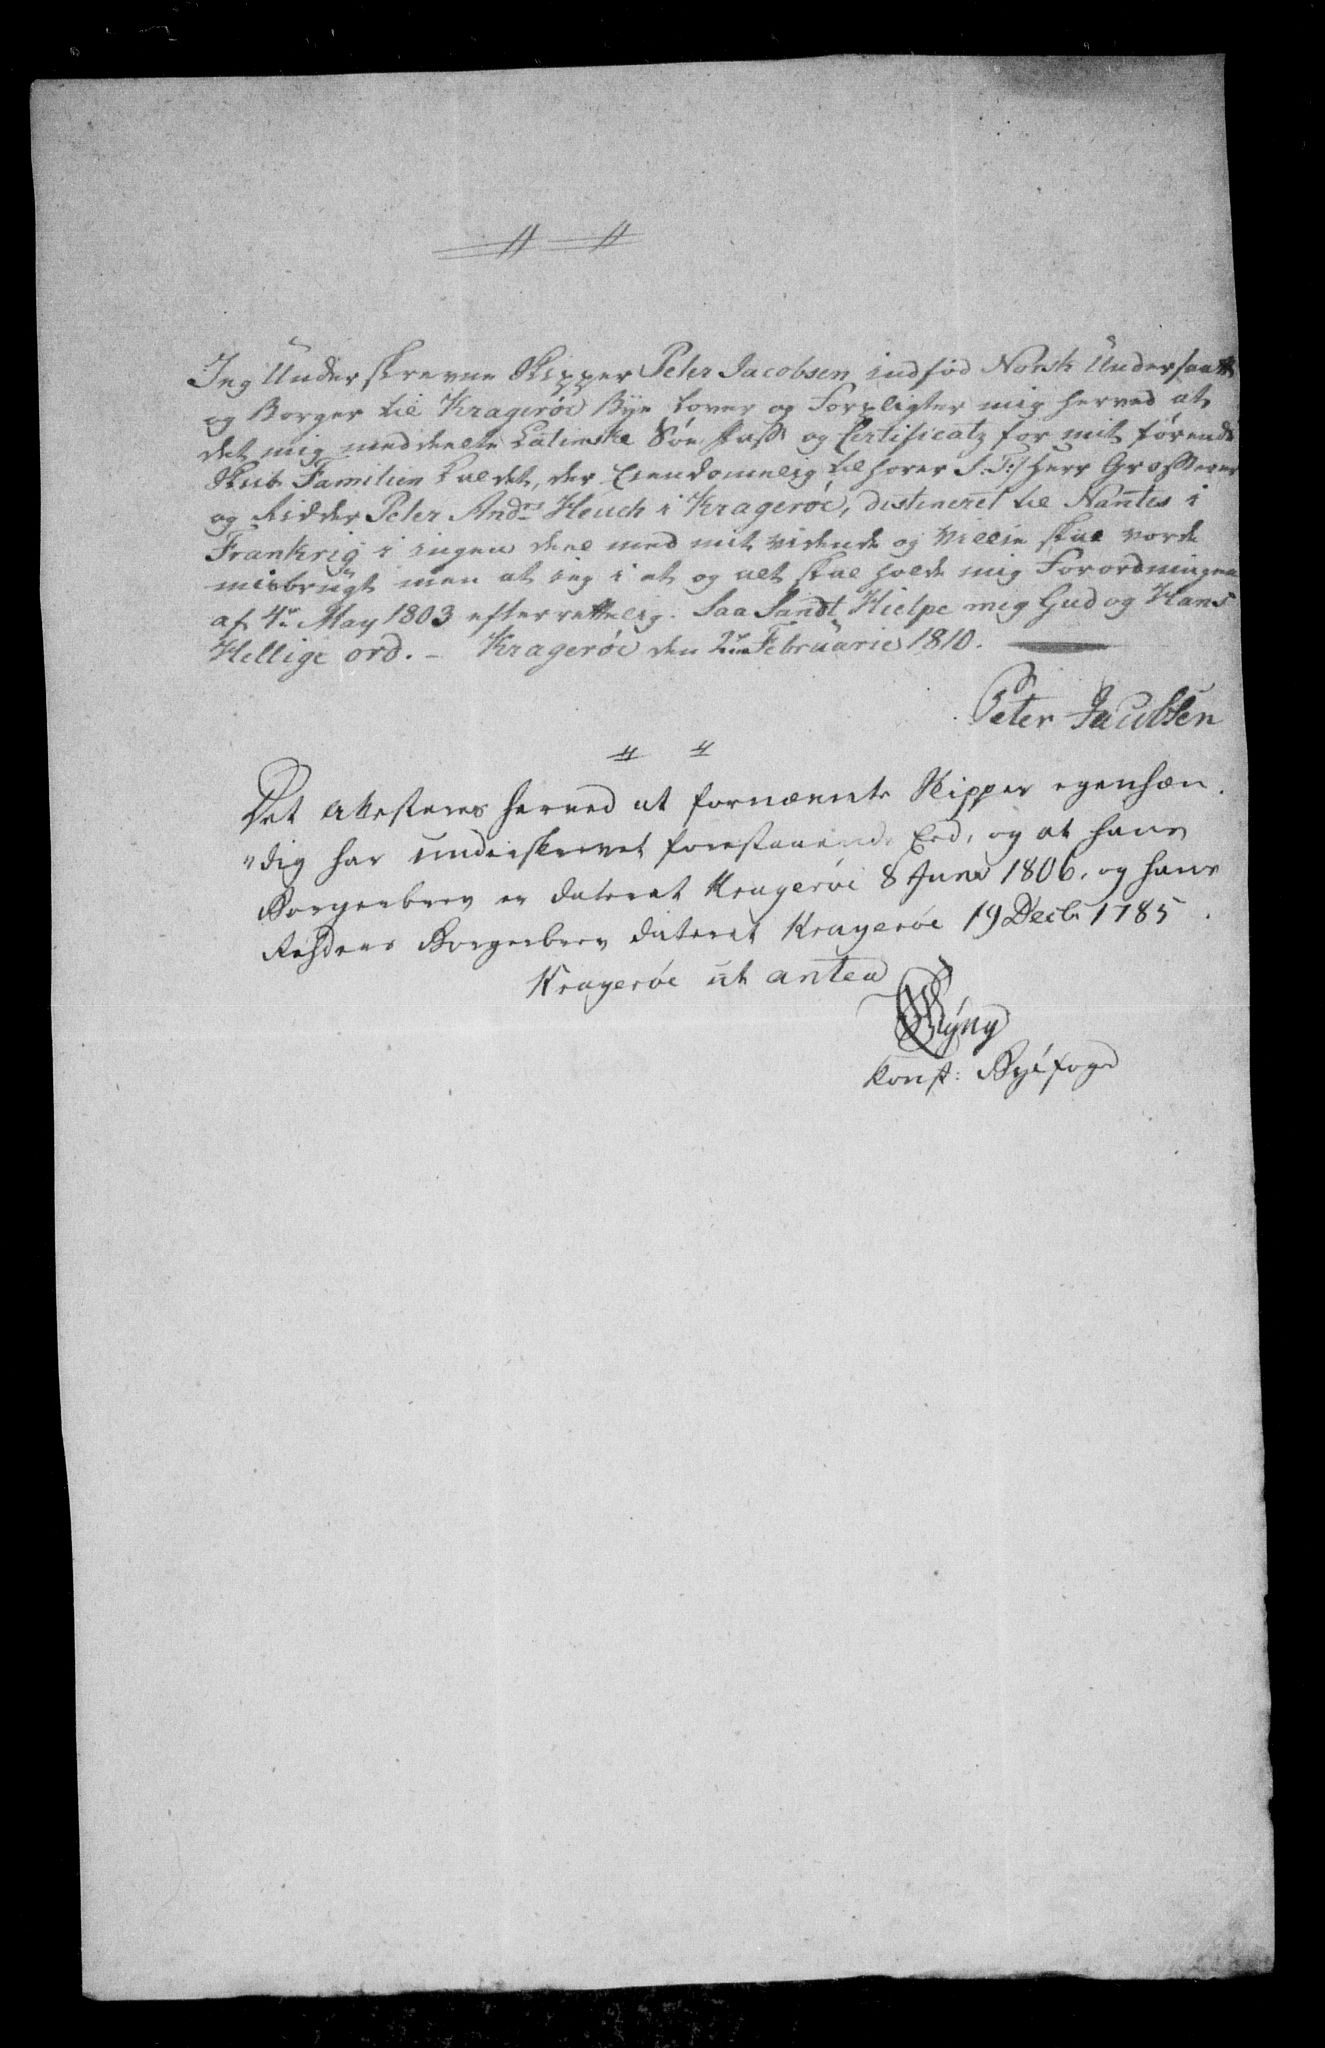 Jeg Underskrevne Skipper Peter Jacobsen indfød Norsk Undersaatt
og Borger til Kragerøe Bye Lover og Forpligter mig herved at
det mig meddeelte Latinske Søe Pass og Certificatz for mit førende
Skib Familien kaldet, der Eiendommelig tilhorer S: T: Herr Grosserer
og Ridder Peter And:rs Heuch i Kragerøe, distineret til Nantes i
Frankrig i ingen deel med mit vidende og Villie skal vorde
misbrugt men at ieg i et og alt skal holde mig Forordningen
af 4de May 1803 efterrettelig. Saa Sandt Hielpe mig Gud og Hans
Hellige ord. - Kragerøe den 2den Februarie 1810.
Peter Jacobsen
Det attesteres herved at fornævnte Skipper egenhæn
"dig har underskrevet forestaaende Eed, og at hans
Borgerbrev er dateret Kragerøe 8 Juni 1806. og hans
Rehders Borgerbrev dateret Kragerøe 19 Decbr 1785.
Kragerøe ut antea
Konst: Byefoged